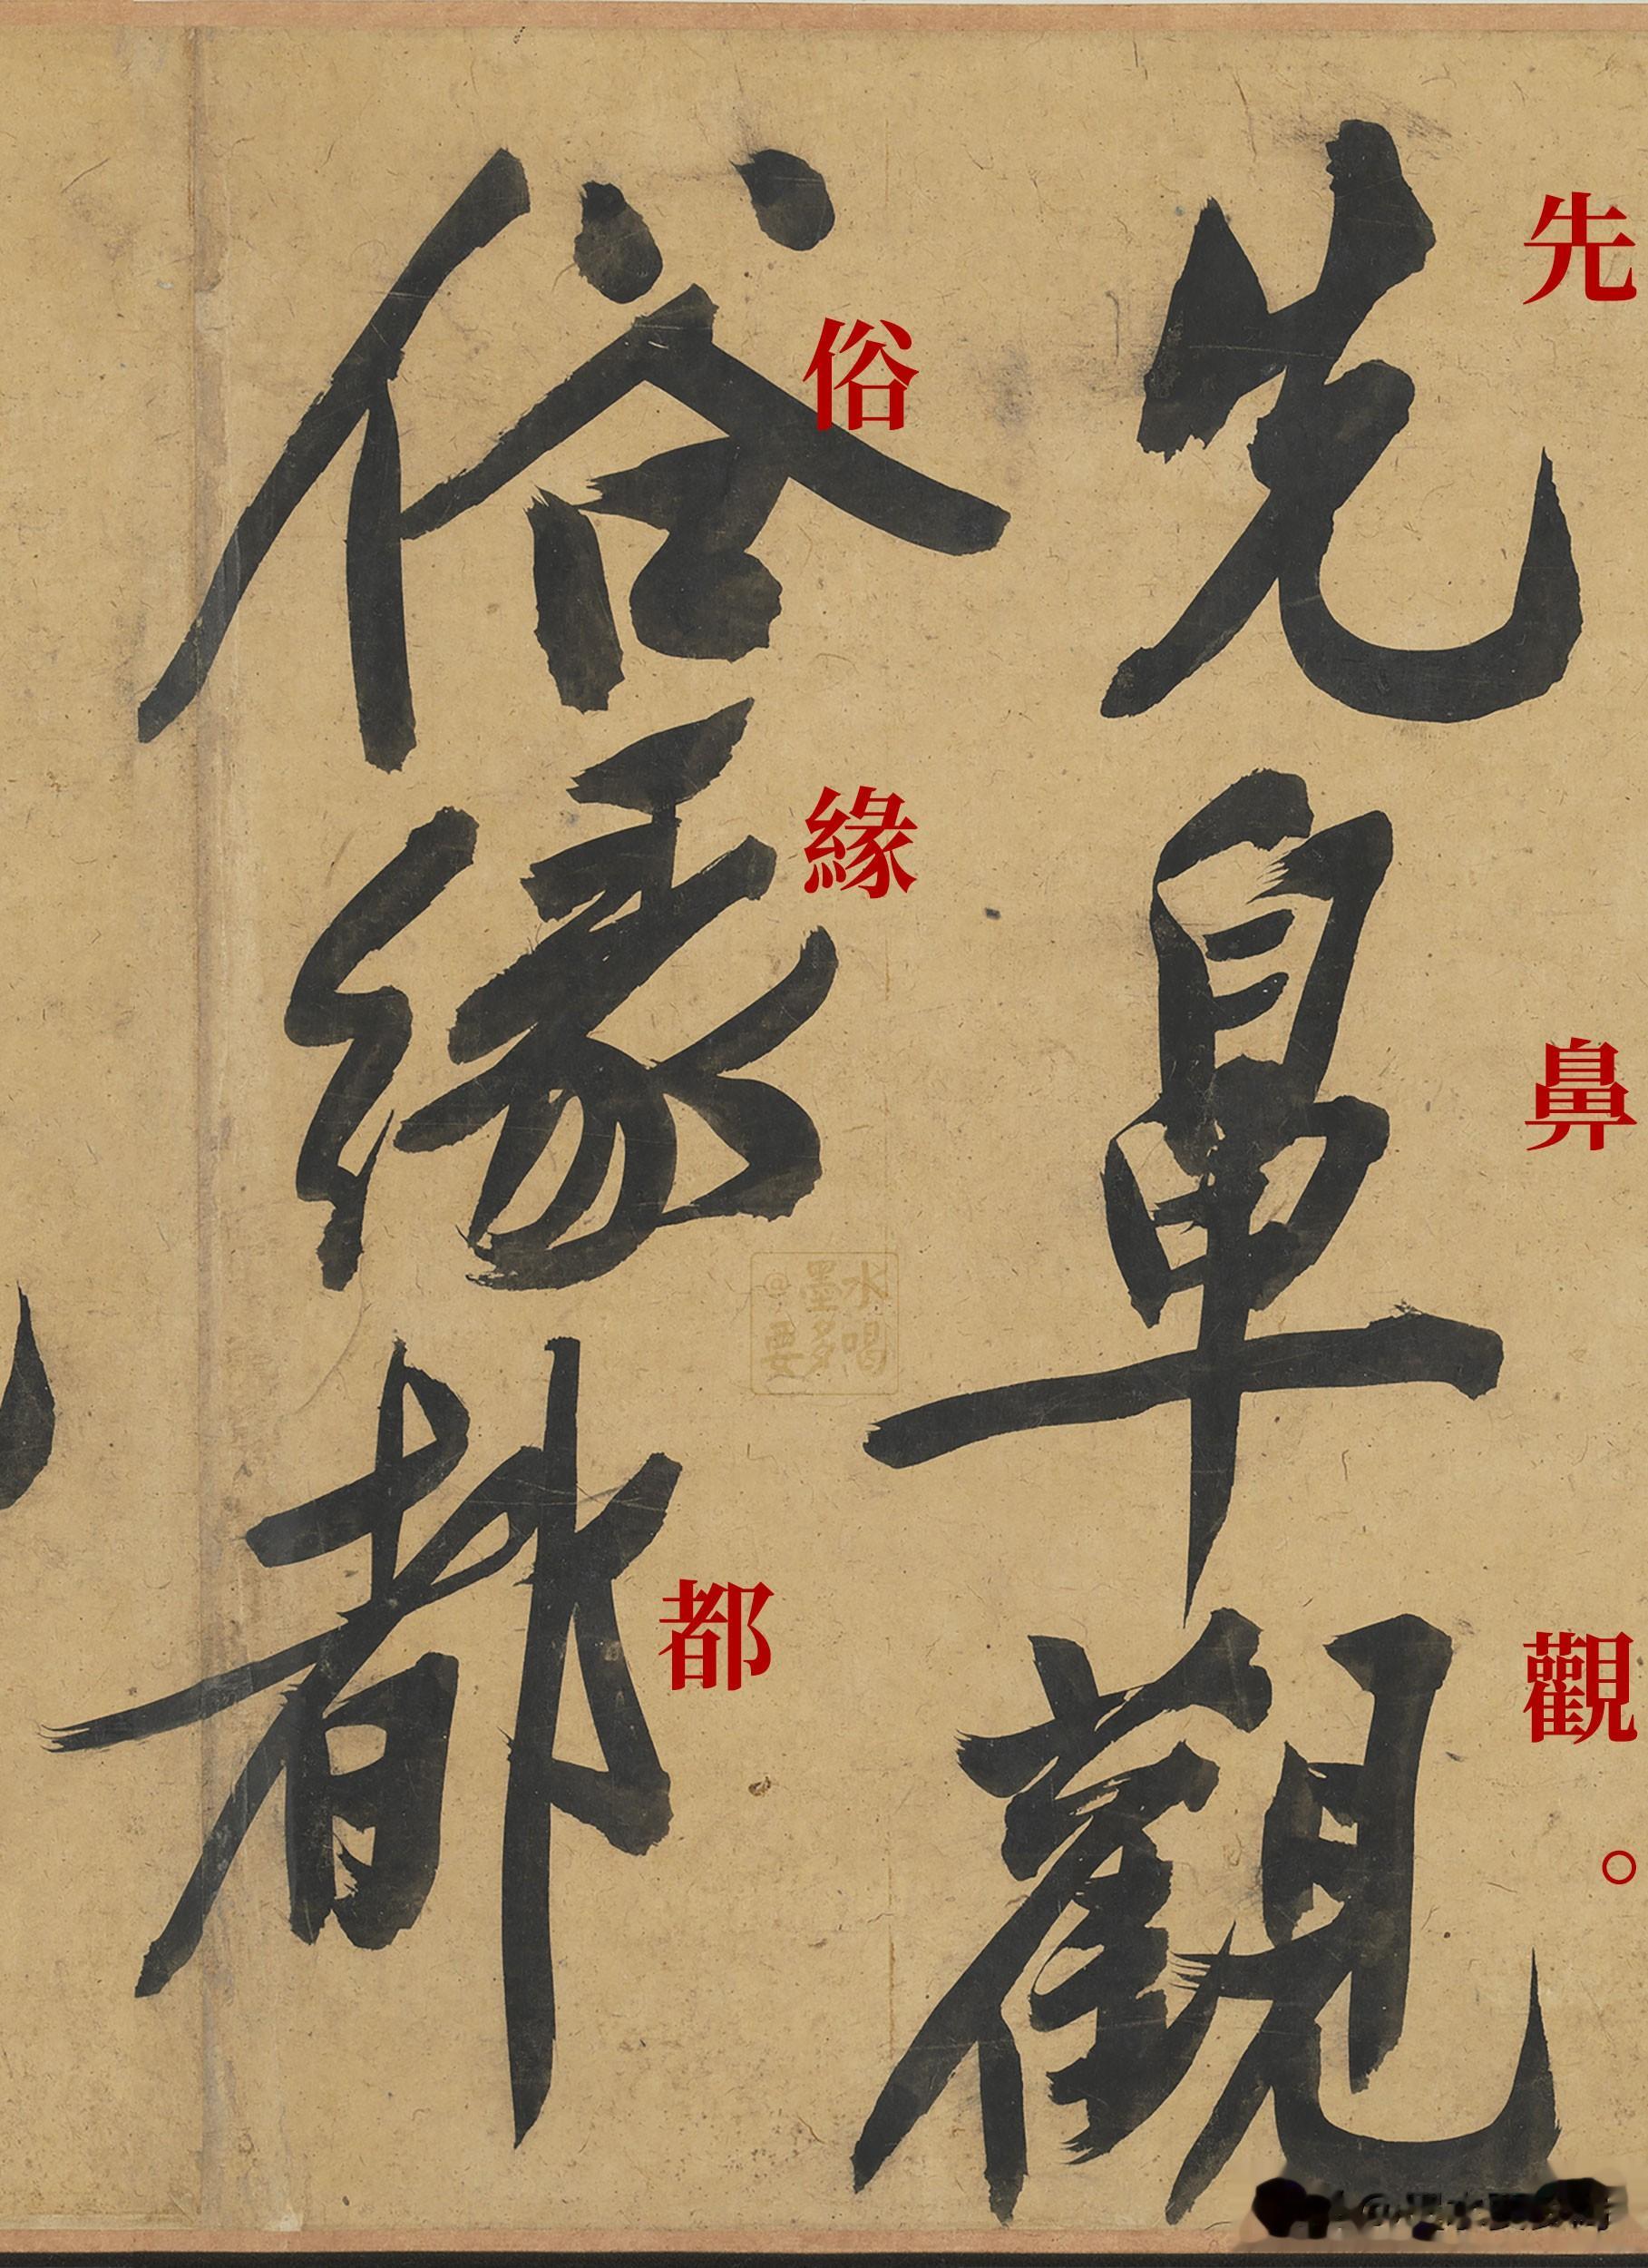 先鼻觀。
先鼻觀
俗緣都
俗緣都
@墨水
要多喝